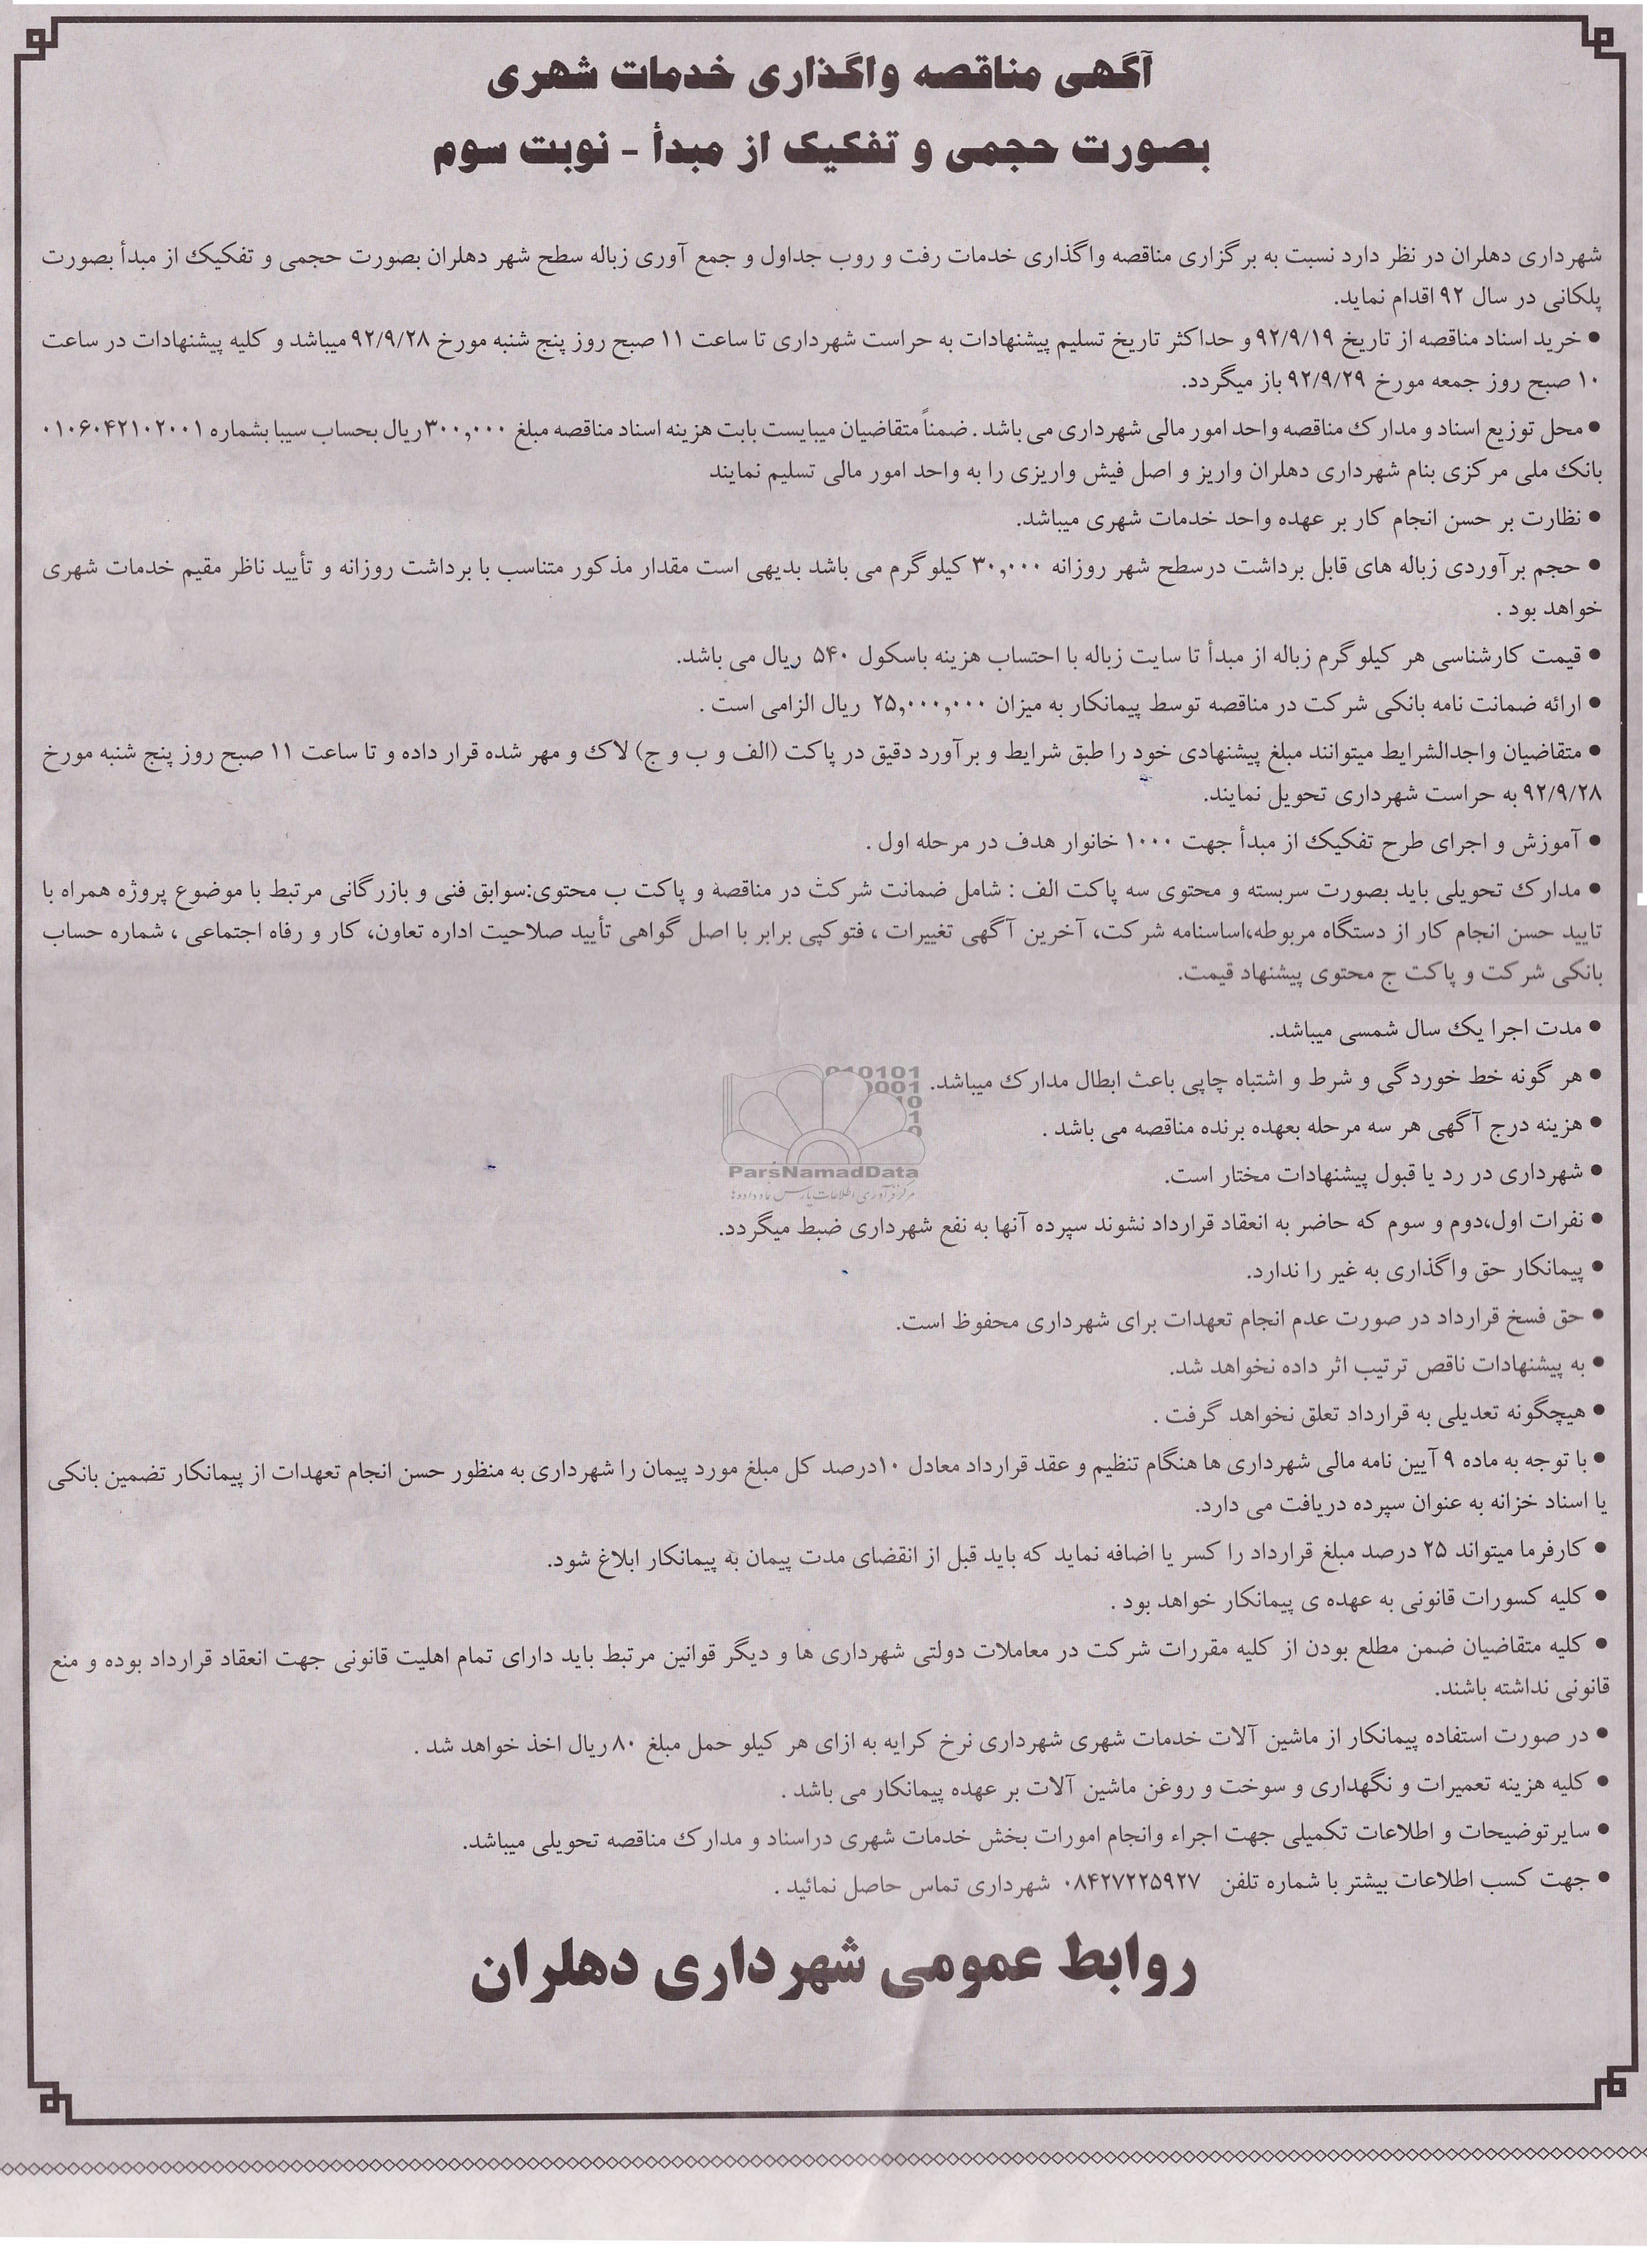 آگهی مناقصه واگذاری خدمات شهری
بصورت حجمی و تفکیک از مبدأ - نوبت سوم
شهرداری دهلران در نظر دارد نسبت به برگزاری مناقصه واگذاری خدمات رفت و روب جداول و جمع آوری زباله سطح شهر دهلران بصورت حجمی و تفکیک از مبدأ بصورت
پلکانی در سال ۹۲ اقدام نماید.
● خرید اسناد مناقصه از تاریخ ۹۲/۹/۱۹ و حداکثر تاریخ تسلیم پیشنهادات به حراست شهرداری تا ساعت ۱۱ صبح روز پنج شنبه مورخ ۹۲/۹/۲۸ میباشد و کلیه پیشنهادات در ساعت
۱۰ صبح روز جمعه مورخ ۹۲/۹/۲۹ باز میگردد.
● محل توزیع اسناد و مدارک مناقصه واحد امور مالی شهرداری می باشد . ضمناً متقاضیان میبایست بابت هزینه اسناد مناقصه مبلغ ۳۰۰,۰۰۰ ریال بحساب سیبا بشماره ۰۱۰۶۰۴۲۱۰۲۰۰۱
بانک ملی مرکزی بنام شهرداری دهلران واریز و اصل فیش واریزی را به واحد امور مالی تسلیم نمایند
● نظارت بر حسن انجام کار بر عهده واحد خدمات شهری میباشد.
● حجم برآوردی زباله های قابل برداشت درسطح شهر روزانه ۳۰,۰۰۰ کیلوگرم می باشد بدیهی است مقدار مذکور متناسب با برداشت روزانه و تأیید ناظر مقیم خدمات شهری
خواهد بود .
● قیمت کارشناسی هر کیلوگرم زباله از مبدأ تا سایت زباله با احتساب هزینه باسکول ۵۴۰ ریال می باشد.
● ارائه ضمانت نامه بانکی شرکت در مناقصه توسط پیمانکار به میزان ۲۵,۰۰۰,۰۰۰ ریال الزامی است .
● متقاضیان واجدالشرایط میتوانند مبلغ پیشنهادی خود را طبق شرایط و برآورد دقیق در پاکت (الف و ب و ج) لاک و مهر شده قرار داده و تا ساعت ۱۱ صبح روز پنج شنبه مورخ
۹۲/۹/۲۸ به حراست شهرداری تحویل نمایند.
● آموزش و اجرای طرح تفکیک از مبدأ جهت ۱۰۰۰ خانوار هدف در مرحله اول .
● مدارک تحویلی باید بصورت سربسته و محتوی سه پاکت الف : شامل ضمانت شرکت در مناقصه و پاکت ب محتوی:سوابق فنی و بازرگانی مرتبط با موضوع پروژه همراه با
تایید حسن انجام کار از دستگاه مربوطه،اساسنامه شرکت، آخرین آگهی تغییرات ، فتوکپی برابر با اصل گواهی تأیید صلاحیت اداره تعاون، کار و رفاه اجتماعی ، شماره حساب
بانکی شرکت و پاکت ج محتوی پیشنهاد قیمت.
● مدت اجرا یک سال شمسی میباشد.
● هر گونه خط خوردگی و شرط و اشتباه چاپی باعث ابطال مدارک میباشد.
● هزینه درج آگهی هر سه مرحله بعهده برنده مناقصه می باشد .
ParsNamadData
● شهرداری در رد یا قبول پیشنهادات مختار است.
مرکز فرآوری اطلاعات پارس نماد داده ها
● نفرات اول،دوم و سوم که حاضر به انعقاد قرارداد نشوند سپرده آنها به نفع شهرداری ضبط میگردد.
● پیمانکار حق واگذاری به غیر را ندارد.
● حق فسخ قرارداد در صورت عدم انجام تعهدات برای شهرداری محفوظ است.
● به پیشنهادات ناقص ترتیب اثر داده نخواهد شد.
● هیچگونه تعدیلی به قرارداد تعلق نخواهد گرفت .
● با توجه به ماده ۹ آیین نامه مالی شهرداری ها هنگام تنظیم و عقد قرارداد معادل ۱۰درصد کل مبلغ مورد پیمان را شهرداری به منظور حسن انجام تعهدات از پیمانکار تضمین بانکی
یا اسناد خزانه به عنوان سپرده دریافت می دارد.
● کارفرما میتواند ۲۵ درصد مبلغ قرارداد را کسر یا اضافه نماید که باید قبل از انقضای مدت پیمان به پیمانکار ابلاغ شود.
● کلیه کسورات قانونی به عهده ی پیمانکار خواهد بود .
● کلیه متقاضیان ضمن مطلع بودن از کلیه مقررات شرکت در معاملات دولتی شهرداری ها و دیگر قوانین مرتبط باید دارای تمام اهلیت قانونی جهت انعقاد قرارداد بوده و منع
قانونی نداشته باشند.
● در صورت استفاده پیمانکار از ماشین آلات خدمات شهری شهرداری نرخ کرایه به ازای هر کیلو حمل مبلغ ۸۰ ریال اخذ خواهد شد .
● کلیه هزینه تعمیرات و نگهداری و سوخت و روغن ماشین آلات بر عهده پیمانکار می باشد .
● سایرتوضیحات و اطلاعات تکمیلی جهت اجراء وانجام امورات بخش خدمات شهری دراسناد و مدارک مناقصه تحویلی میباشد.
● جهت کسب اطلاعات بیشتر با شماره تلفن ۰۸۴۲۷۲۲۵۹۲۷ شهرداری تماس حاصل نمائید .
روابط عمومی شهرداری دهلران